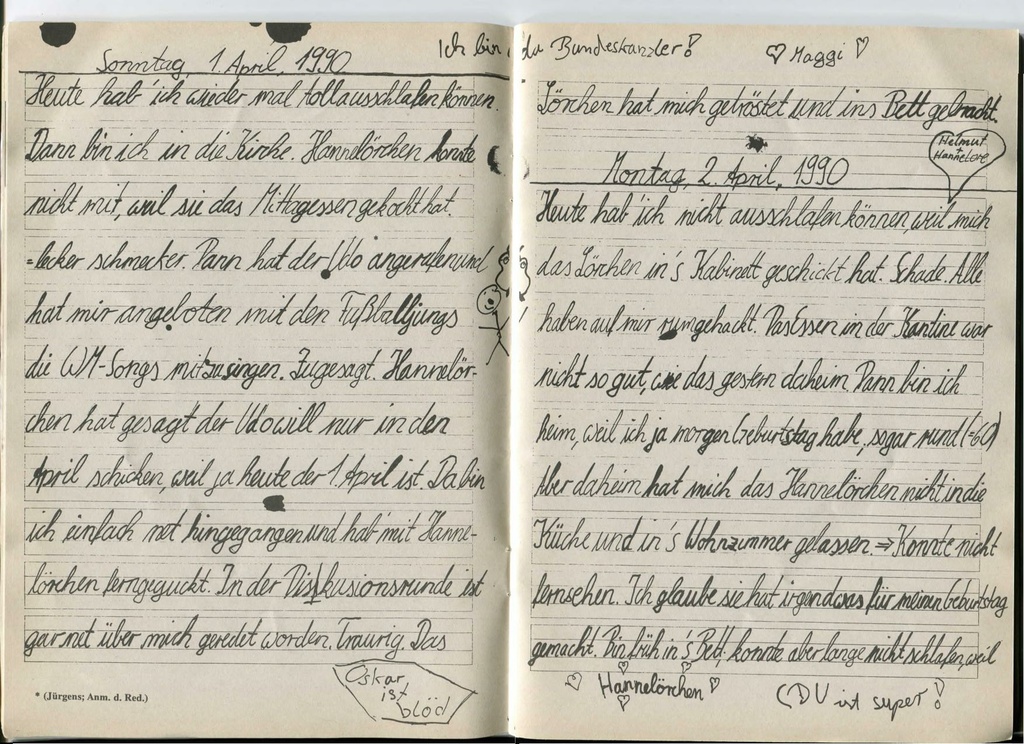 Sonntag 1. April, 1990
Heute hab' ich wieder mal toll ausschlafen können.
Dann bin ich in die Kirche. Hannelörchen konnte
nicht mit, weil sie das Mittagessen gekocht hat.
=lecker schmecker. Dann hat der Udo angerufen und
hat mir angeboten mit den Fußballjungs
die WM-Songs mitzusingen. Zugesagt. Hannelör-
chen hat gesagt der Udo will nur in den
April schicken, weil ja heute der 1. April ist. Da bin
ich einfach net hingegangen und hab' mit Hanne-
lörchen ferngeguckt. In der Diskusionsrunde ist
gar net über mich geredet worden. Traurig. Das
* (Jürgens; Anm. d. Red.)
Oskar
ist
blöd
Ich bin da Bundeskanzler!
♡ Maggi ♡
Lörchen hat mich getröstet und ins Bett gebracht.
Helmut
+
Hannelore
Montag, 2. April, 1990
Heute hab' ich nicht ausschlafen können, weil mich
das Lörchen in's Kabinett geschickt hat. Schade. Alle
haben auf mir rumgehackt. Das Essen in der Kantine war
nicht so gut, wie das gestern daheim. Dann bin ich
heim, weil ich ja morgen Geburtstag habe, sogar rund (=60)
Aber daheim hat mich das Hannelörchen nicht in die
Küche und in's Wohnzimmer gelassen. ⇒ Konnte nicht
fernsehen. Ich glaube sie hat irgendwas für meinen Geburtstag
gemacht. Bin früh in's Bett, konnte aber lange nicht schlafen, weil
♡ Hannelörchen ♡
CDU ist super!